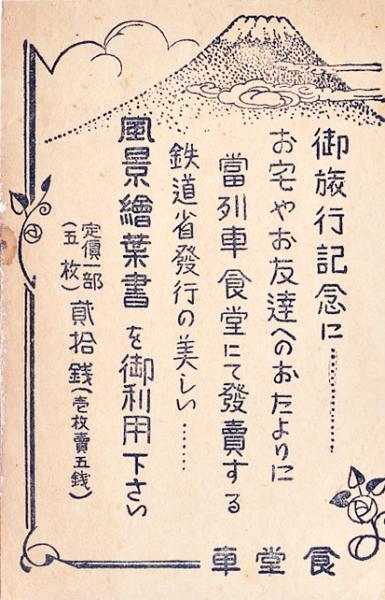 御旅行記念に…………
お宅やお友達へのおたよりに
當列車食堂にて發賣する
鉄道省發行の美しい……
風景繪葉書を御利用下さい
定價一部(五枚)貳拾錢(壱枚賣五錢)
食堂車